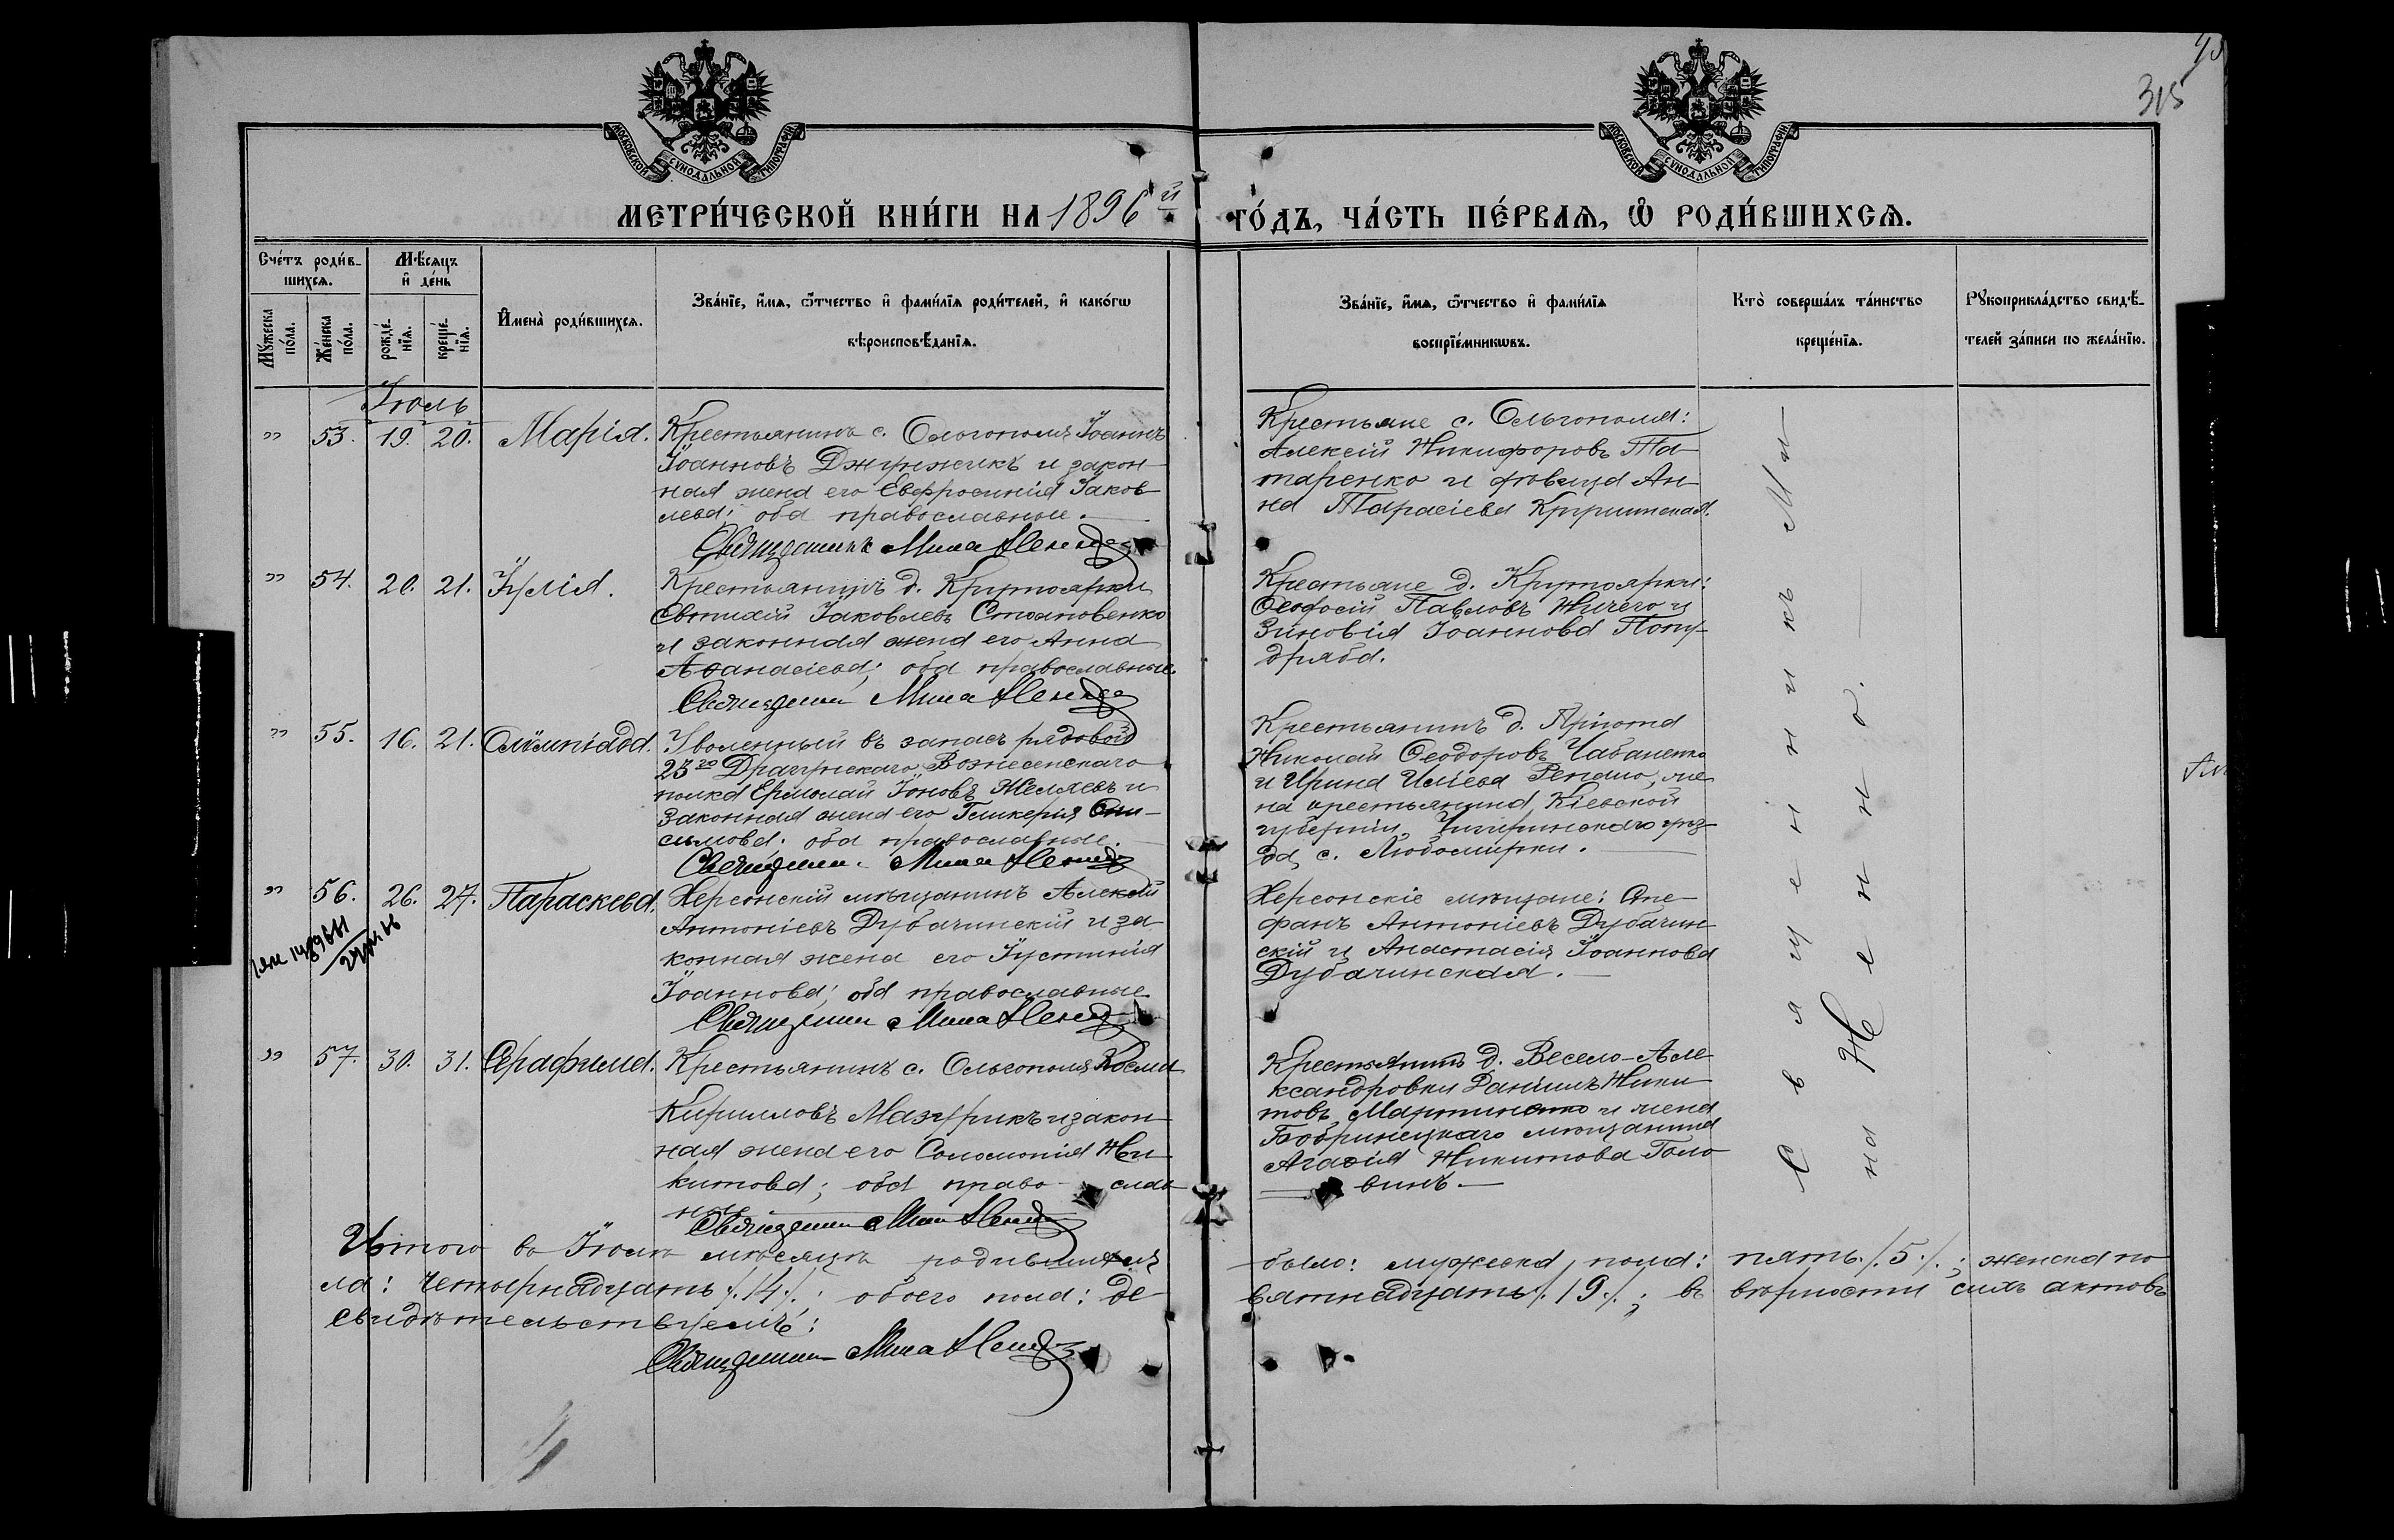 315
МОСКОВСКОЙ СУНОДАЛЬНОЙ ТИПОГРАФІИ
МОСКОВСКОЙ СУНОДАЛЬНОЙ ТИПОГРАФІИ
МЕТРИ́ЧЕСКОЙ КНИ́ГИ НА 1896 й го́дъ, ча́сть пе́рвая, ѽ роди́вшихся.
Сче́тъ роди́в-
шихся.
Му́жеска по́ла.
Же́нска по́ла.
Мѣ́сяцъ и҆ де́нь
рожде́-
нїя.
креще́-
нїя.
И҆мена̀ роди́вшихся.
Зва́нїе, и҆́мя, ѻ҆́тчество и҆ фами́лїя роди́телей, и҆ како́гѡ
вѣроисповѣ́данїя.
Зва́нїе, и҆́мя, ѻ҆́тчество и҆ фами́лїя
воспрїе́мникѡвъ.
Кто̀ соверша́лъ та́инство
креще́нїя.
Рꙋкоприкла́дство свидѣ́-
телей за́писи по жела́нїю.
Іюль
" 53. 19. 20. Марія.
Крестьянинъ с. Ольгополя Іоаннъ
Іоанновъ Джунжикъ и закон-
ная жена его Евфросинія Іаков-
лева; оба православные.
Священникъ Мина
Крестьяне с. Ольгополя:
Алексій Никифоровъ Та-
таренко и дѣвица Ан-
на Тарасіева
" 54. 20. 21. Іулія.
Крестьянинъ д. Крутоярки
Евтихій Іаковлевъ Стояновенко
и законная жена его Анна
Аѳанасіева; оба православные.
Священникъ Мина
Крестьяне д. Крутоярки:
Ѳеодосій Павловъ Ничего и
Зиновія Іоаннова Попу-
дряба.
" 55. 16. 21. Олимпіада.
Уволенный въ запасъ рядовой
23го Драгунскаго Вознесенскаго
полка Ермолай Іоновъ Желяевъ и
законная жена его Гликерія Они-
симова; оба православные.
Священникъ Мина
Крестьянинъ д. Пріюта
Николай Ѳеодоровъ Чабаненко
и Ирина Иліева же-
на крестьянина, Кіевской
губерніи, Чигиринскаго уѣз-
да, с. Любомирки.
" 56. 26. 27. Параскева.
Херсонскій мѣщанинъ Алексій
Антоніевъ Дубачинскій и за-
конная жена его Іустинія
Іоаннова; оба православные
Священникъ Мина
Херсонскіе мѣщане: Сте-
фанъ Антоніевъ Дубачин-
скій и Анастасія Іоаннова
Дубачинская.
" 57. 30. 31. Серафима.
Крестьянинъ с. Ольгополя Косма
Кирилловъ Мазурикъ и закон-
ная жена его Соломонія Ни-
китова; оба православ-
ные
Священникъ Мина
Крестьянинъ д. Весело-Але-
ксандровки Даніилъ Ники-
товъ Мартиненко и жена
Бобринецкаго мѣщанина
Агаѳія Никитова Голо-
винъ.
Священникъ Ми-
на Ненно.
Итого въ Іюлѣ мѣсяцѣ родившихся было: мужеска пола: пять /5/; женска по-
ла: четырнадцать /14/; обоего пола: де- вятнадцать /19/; въ вѣрности сихъ актовъ
свидѣтельствуемъ:
Священникъ Мина